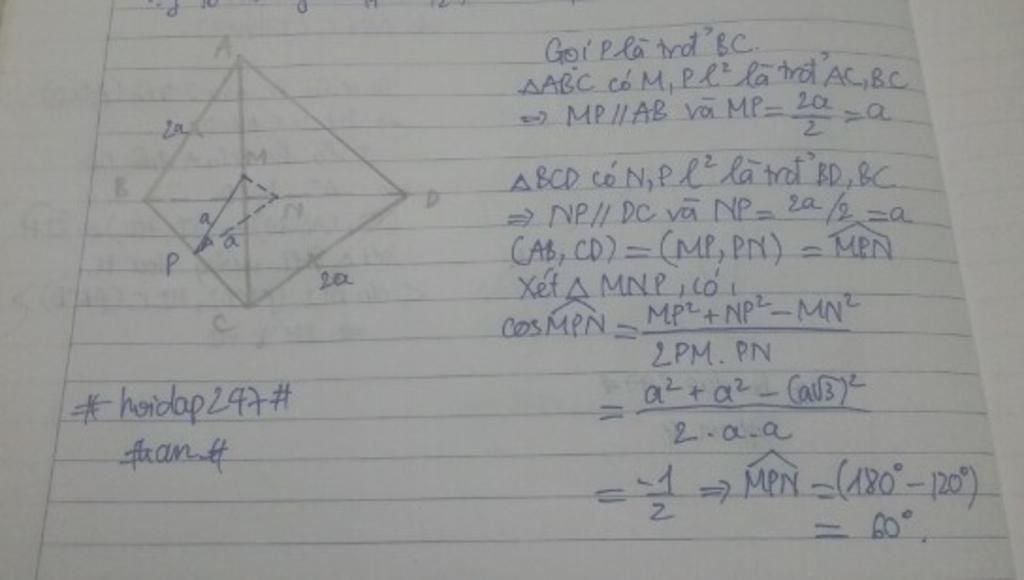 A
2a
M
B
D
N
a
a
P
2a
C
# hoidap247#
#an#
Gọi P là trđ² BC.
△ABC có M, P l² là trđ² AC, BC
⇒ MP // AB và MP = 2a/2 = a
△BCD có N, P l² là trđ² BD, BC
⇒ NP // DC và NP = 2a/2 = a
(AB, CD) = (MP, PN) = \widehat{MPN}
Xét △ MNP, có:
cos \widehat{MPN} = \frac{MP² + NP² - MN²}{2PM . PN}
= \frac{a² + a² - (a√3)²}{2 . a . a}
= \frac{-1}{2} ⇒ \widehat{MPN} = (180° - 120°)
= 60°.